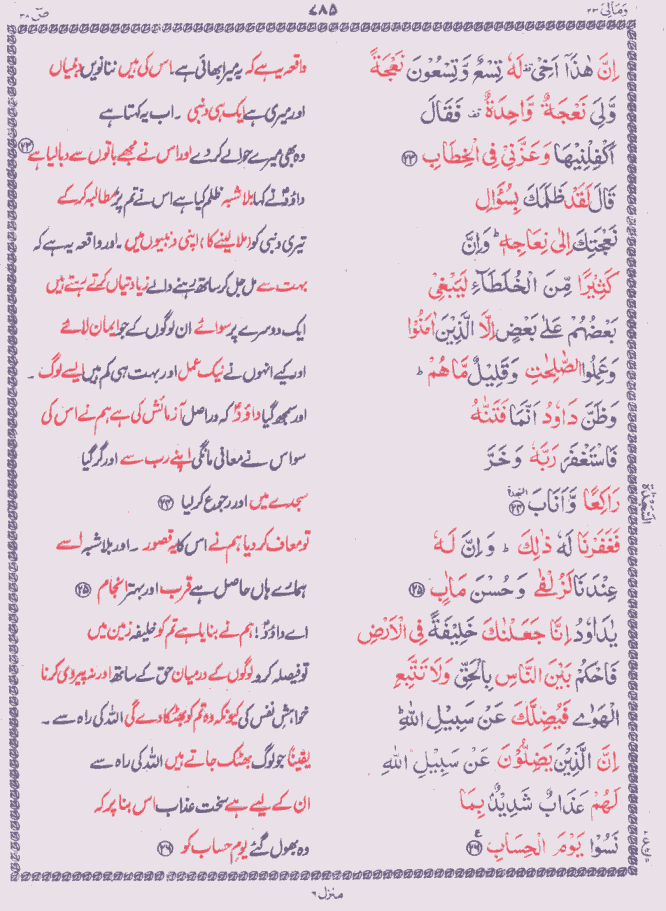 وَمَالِیَ ٢٣
٧٨٥
صٓ ٣٨
اِنَّ هٰذَاۤ اَخِیْ لَهٗ تِسْعٌ وَّتِسْعُوْنَ نَعْجَةً
واقعہ یہ ہے کہ یہ میرا بھائی ہے۔ اس کی ہیں ننانویں دنبیاں
وَّلِیَ نَعْجَةٌ وَّاحِدَةٌ فَقَالَ
اور میری ہے ایک ہی دنبی ۔ اب یہ کہتا ہے
اَكْفِلْنِیْهَا وَعَزَّنِیْ فِی الْخِطَابِ ﴿٢٣﴾
وہ بھی میرے حوالے کر دے اور اس نے مجھے باتوں سے دبا لیا ہے ﴿٢٣﴾
قَالَ لَقَدْ ظَلَمَكَ بِسُؤَالِ
داؤدؑ نے کہا بلاشبہ ظلم کیا ہے اس نے تم پر مطالبہ کر کے
نَعْجَتِكَ اِلٰی نِعَاجِهٖ ؕ وَاِنَّ
تیری دنبی کو (ملا لینے کا) اپنی دنبیوں میں ۔ اور واقعہ یہ ہے کہ
كَثِیْرًا مِّنَ الْخُلَطَآءِ لَیَبْغِیْ
بہت سے مل جل کر ساتھ رہنے والے زیادتیاں کرتے رہتے ہیں
بَعْضُهُمْ عَلٰی بَعْضٍ اِلَّا الَّذِیْنَ اٰمَنُوْا
ایک دوسرے پر سوائے ان لوگوں کے جو ایمان لائے
وَعَمِلُوا الصّٰلِحٰتِ وَقَلِیْلٌ مَّا هُمْ ؕ
اور کیے انہوں نے نیک عمل اور بہت ہی کم ہیں ایسے لوگ ۔
وَظَنَّ دَاوٗدُ اَنَّمَا فَتَنّٰهُ
اور سمجھ گیا داؤدؑ کہ دراصل آزمائش کی ہے ہم نے اس کی
فَاسْتَغْفَرَ رَبَّهٗ وَخَرَّ
سو اس نے معافی مانگی اپنے رب سے اور گر گیا
رَاكِعًا وَّاَنَابَ ﴿٢٤﴾ السجدة
سجدے میں اور رجوع کر لیا ﴿٢٤﴾
فَغَفَرْنَا لَهٗ ذٰلِكَ ؕ وَاِنَّ لَهٗ
تو معاف کر دیا ہم نے اس کا یہ قصور ۔ اور بلاشبہ اسے
عِنْدَنَا لَزُلْفٰی وَحُسْنَ مَاٰبٍ ﴿٢٥﴾
ہمارے ہاں حاصل ہے قرب اور بہتر انجام ﴿٢٥﴾
یٰدَاوٗدُ اِنَّا جَعَلْنٰكَ خَلِیْفَةً فِی الْاَرْضِ
اے داؤدؑ! ہم نے بنایا ہے تم کو خلیفہ زمین میں
فَاحْكُمْ بَیْنَ النَّاسِ بِالْحَقِّ وَلَا تَتَّبِعِ
تو فیصلہ کرو لوگوں کے درمیان حق کے ساتھ اور نہ پیروی کرنا
الْهَوٰی فَیُضِلَّكَ عَنْ سَبِیْلِ اللّٰهِ ؕ
خواہشِ نفس کی کیونکہ وہ تم کو بھٹکا دے گی اللہ کی راہ سے ۔
اِنَّ الَّذِیْنَ یَضِلُّوْنَ عَنْ سَبِیْلِ اللّٰهِ
یقیناً جو لوگ بھٹک جاتے ہیں اللہ کی راہ سے
لَهُمْ عَذَابٌ شَدِیْدٌۢ بِمَا
ان کے لیے ہے سخت عذاب اس بنا پر کہ
نَسُوْا یَوْمَ الْحِسَابِ ﴿٢٦﴾ ع
وہ بھول گئے یومِ حساب کو ﴿٢٦﴾
منزل ٦